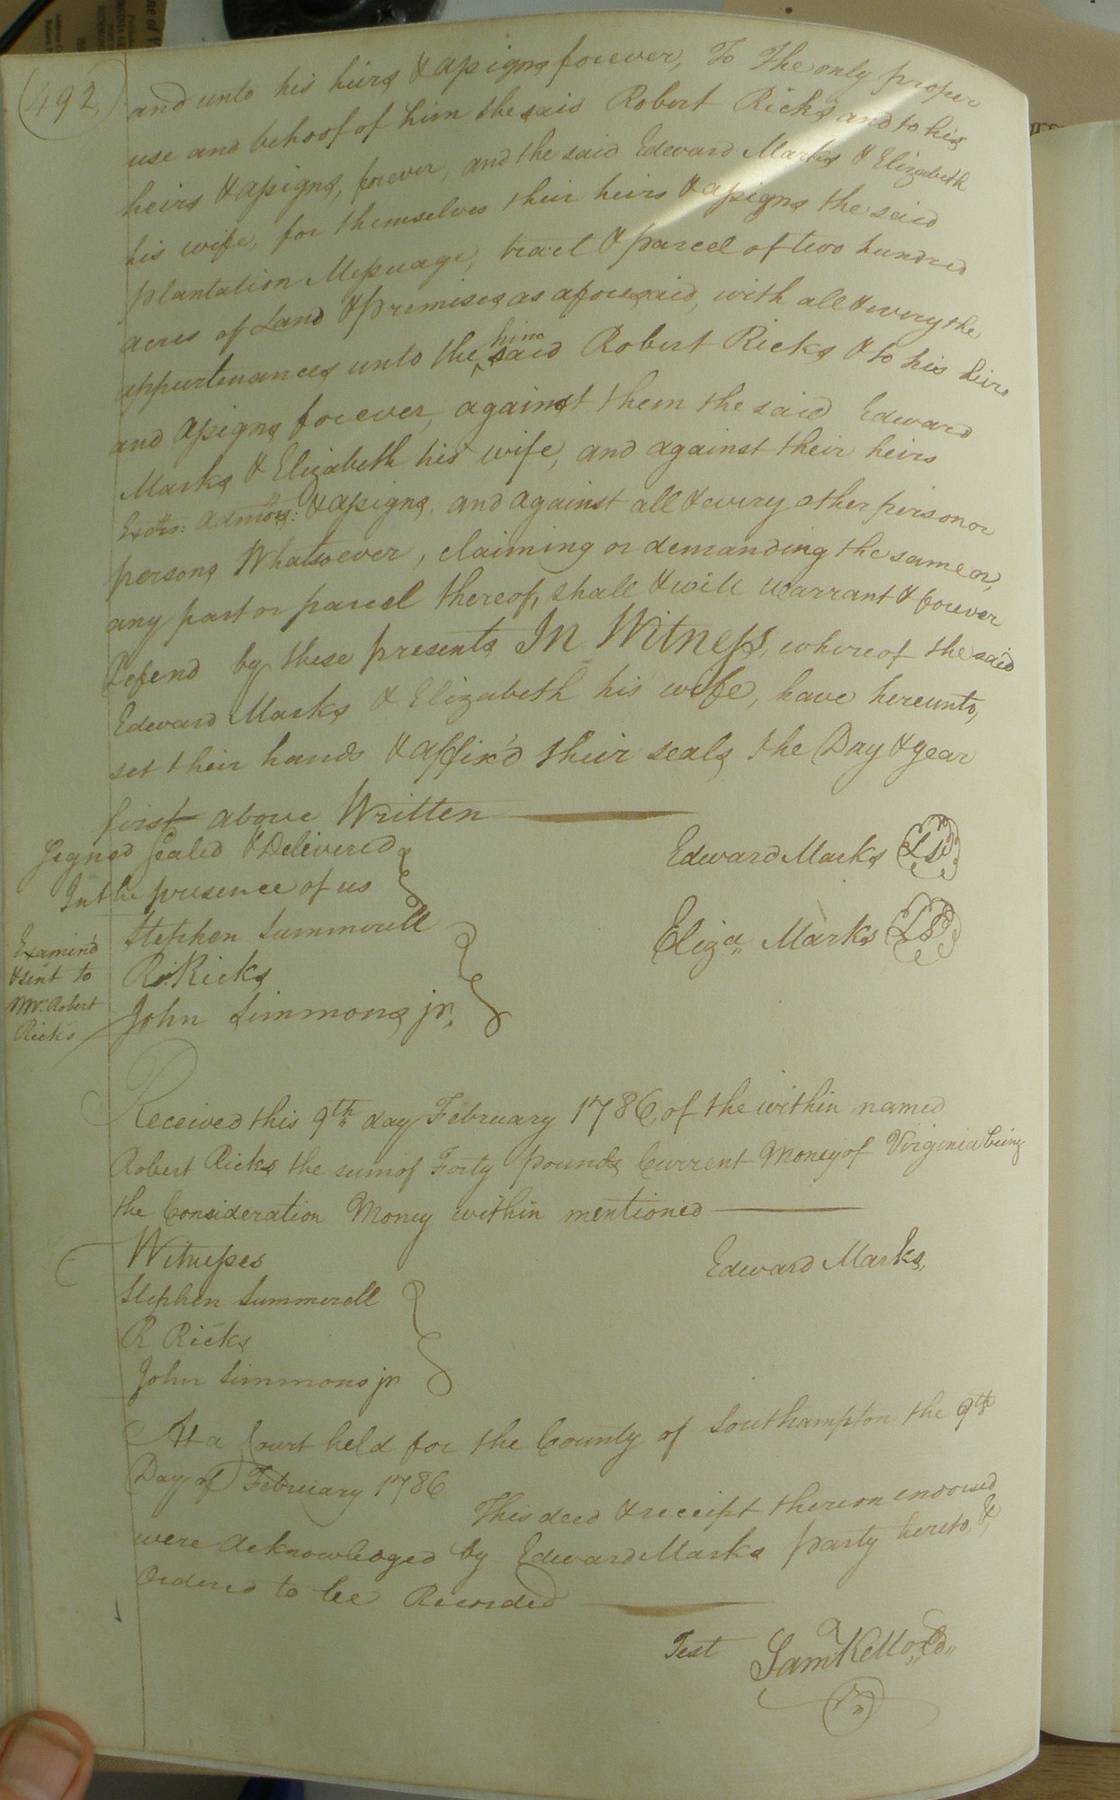 492
and unto his heirs & assigns forever, To The only proper
use and behoof of him the said Robert Ricks and to his
heirs & assigns, forever, and the said Edward Marks & Elizabeth
his wife, for themselves their heirs & assigns the said
plantation Messuage, tract & parcel of two hundred
acres of Land & premises as aforesaid, with all & every the
appurtenances unto the ^him said Robert Ricks & to his heirs
and assigns forever, against them the said Edward
Marks & Elizabeth his wife, and against their heirs
Exōrs: Admōrs: & assigns, and against all & every other person or
persons Whatsoever, claiming or demanding the same or,
any part or parcel thereof, shall & will warrant & forever
Defend by these presents In Witness, whereof the said
Edward Marks & Elizabeth his wife, have hereunto,
set their hands & affix'd their seals, the Day & year
first above Written
Signed Sealed & Delivered
In the presence of us
Stephen Summerell
R. Ricks
John Simmons jr.
Edward Marks LS
Eliza. Marks LS
Examin'd
& sent to
Mr. Robert
Ricks
Received this 9th day February 1786, of the within named
Robert Ricks the sum of Forty pounds Current Money of Virginia being
the Consideration Money within mentioned
Witnesses
Edward Marks,
Stephen Summerell
R Ricks
John Simmons jr
At a Court held for the County of Southampton the 9th
Day of February 1786
This deed & receipt thereon endorsed
were Acknowledged by Edward Marks party hereto, &
Ordered to be Recorded
Test Sam Kello,